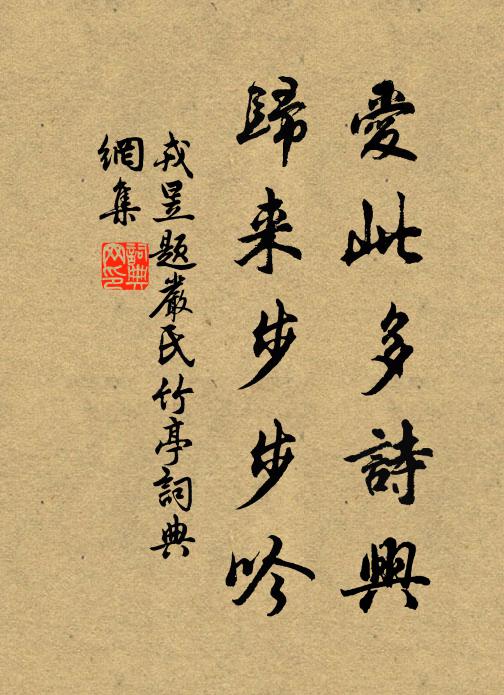 愛此多詩興
歸来步步吟
戎昱題嚴氏竹亭詞典
網集
詞典
网印